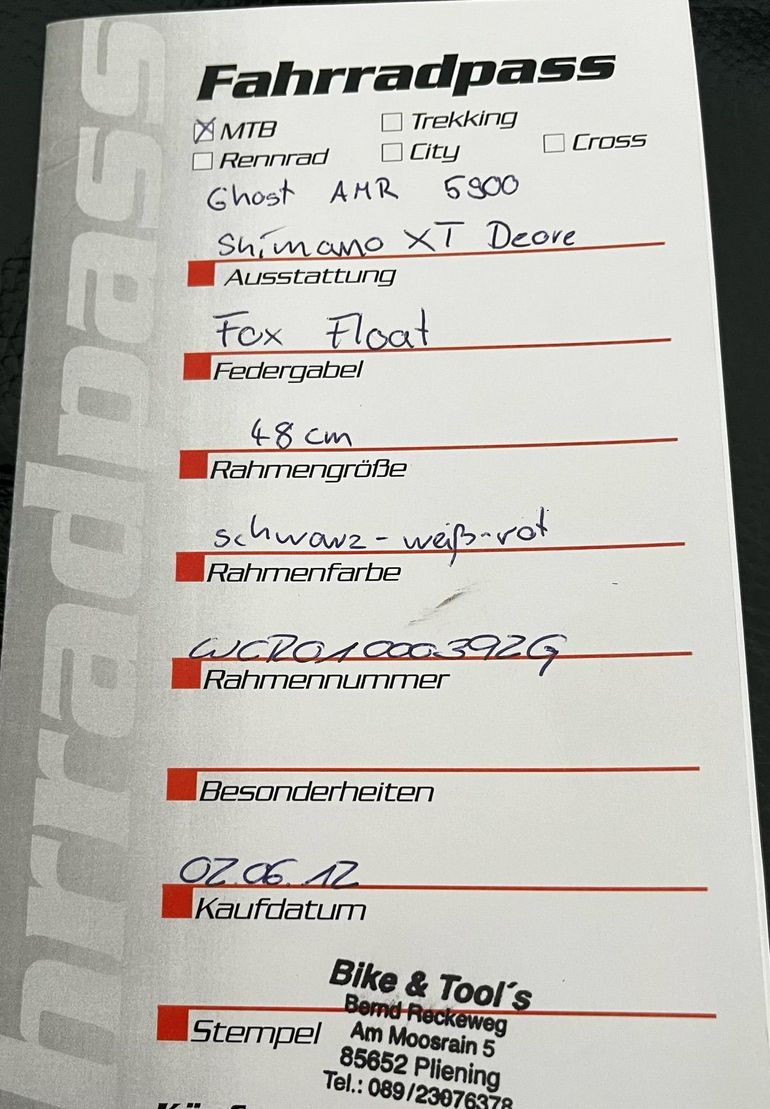 Fahrradpass
☒ MTB ☐ Trekking
☐ Rennrad ☐ City ☐ Cross
Ghost AMR 5900
Shimano XT Deore
Ausstattung
Fox Float
Federgabel
48 cm
Rahmengröße
schwarz-weiß-rot
Rahmenfarbe
WCR01000392G
Rahmennummer
Besonderheiten
02.06.12
Kaufdatum
Bike & Tool´s
Bernd Reckeweg
Stempel Am Moosrain 5
85652 Pliening
Tel.: 089/23076378
hrradpass